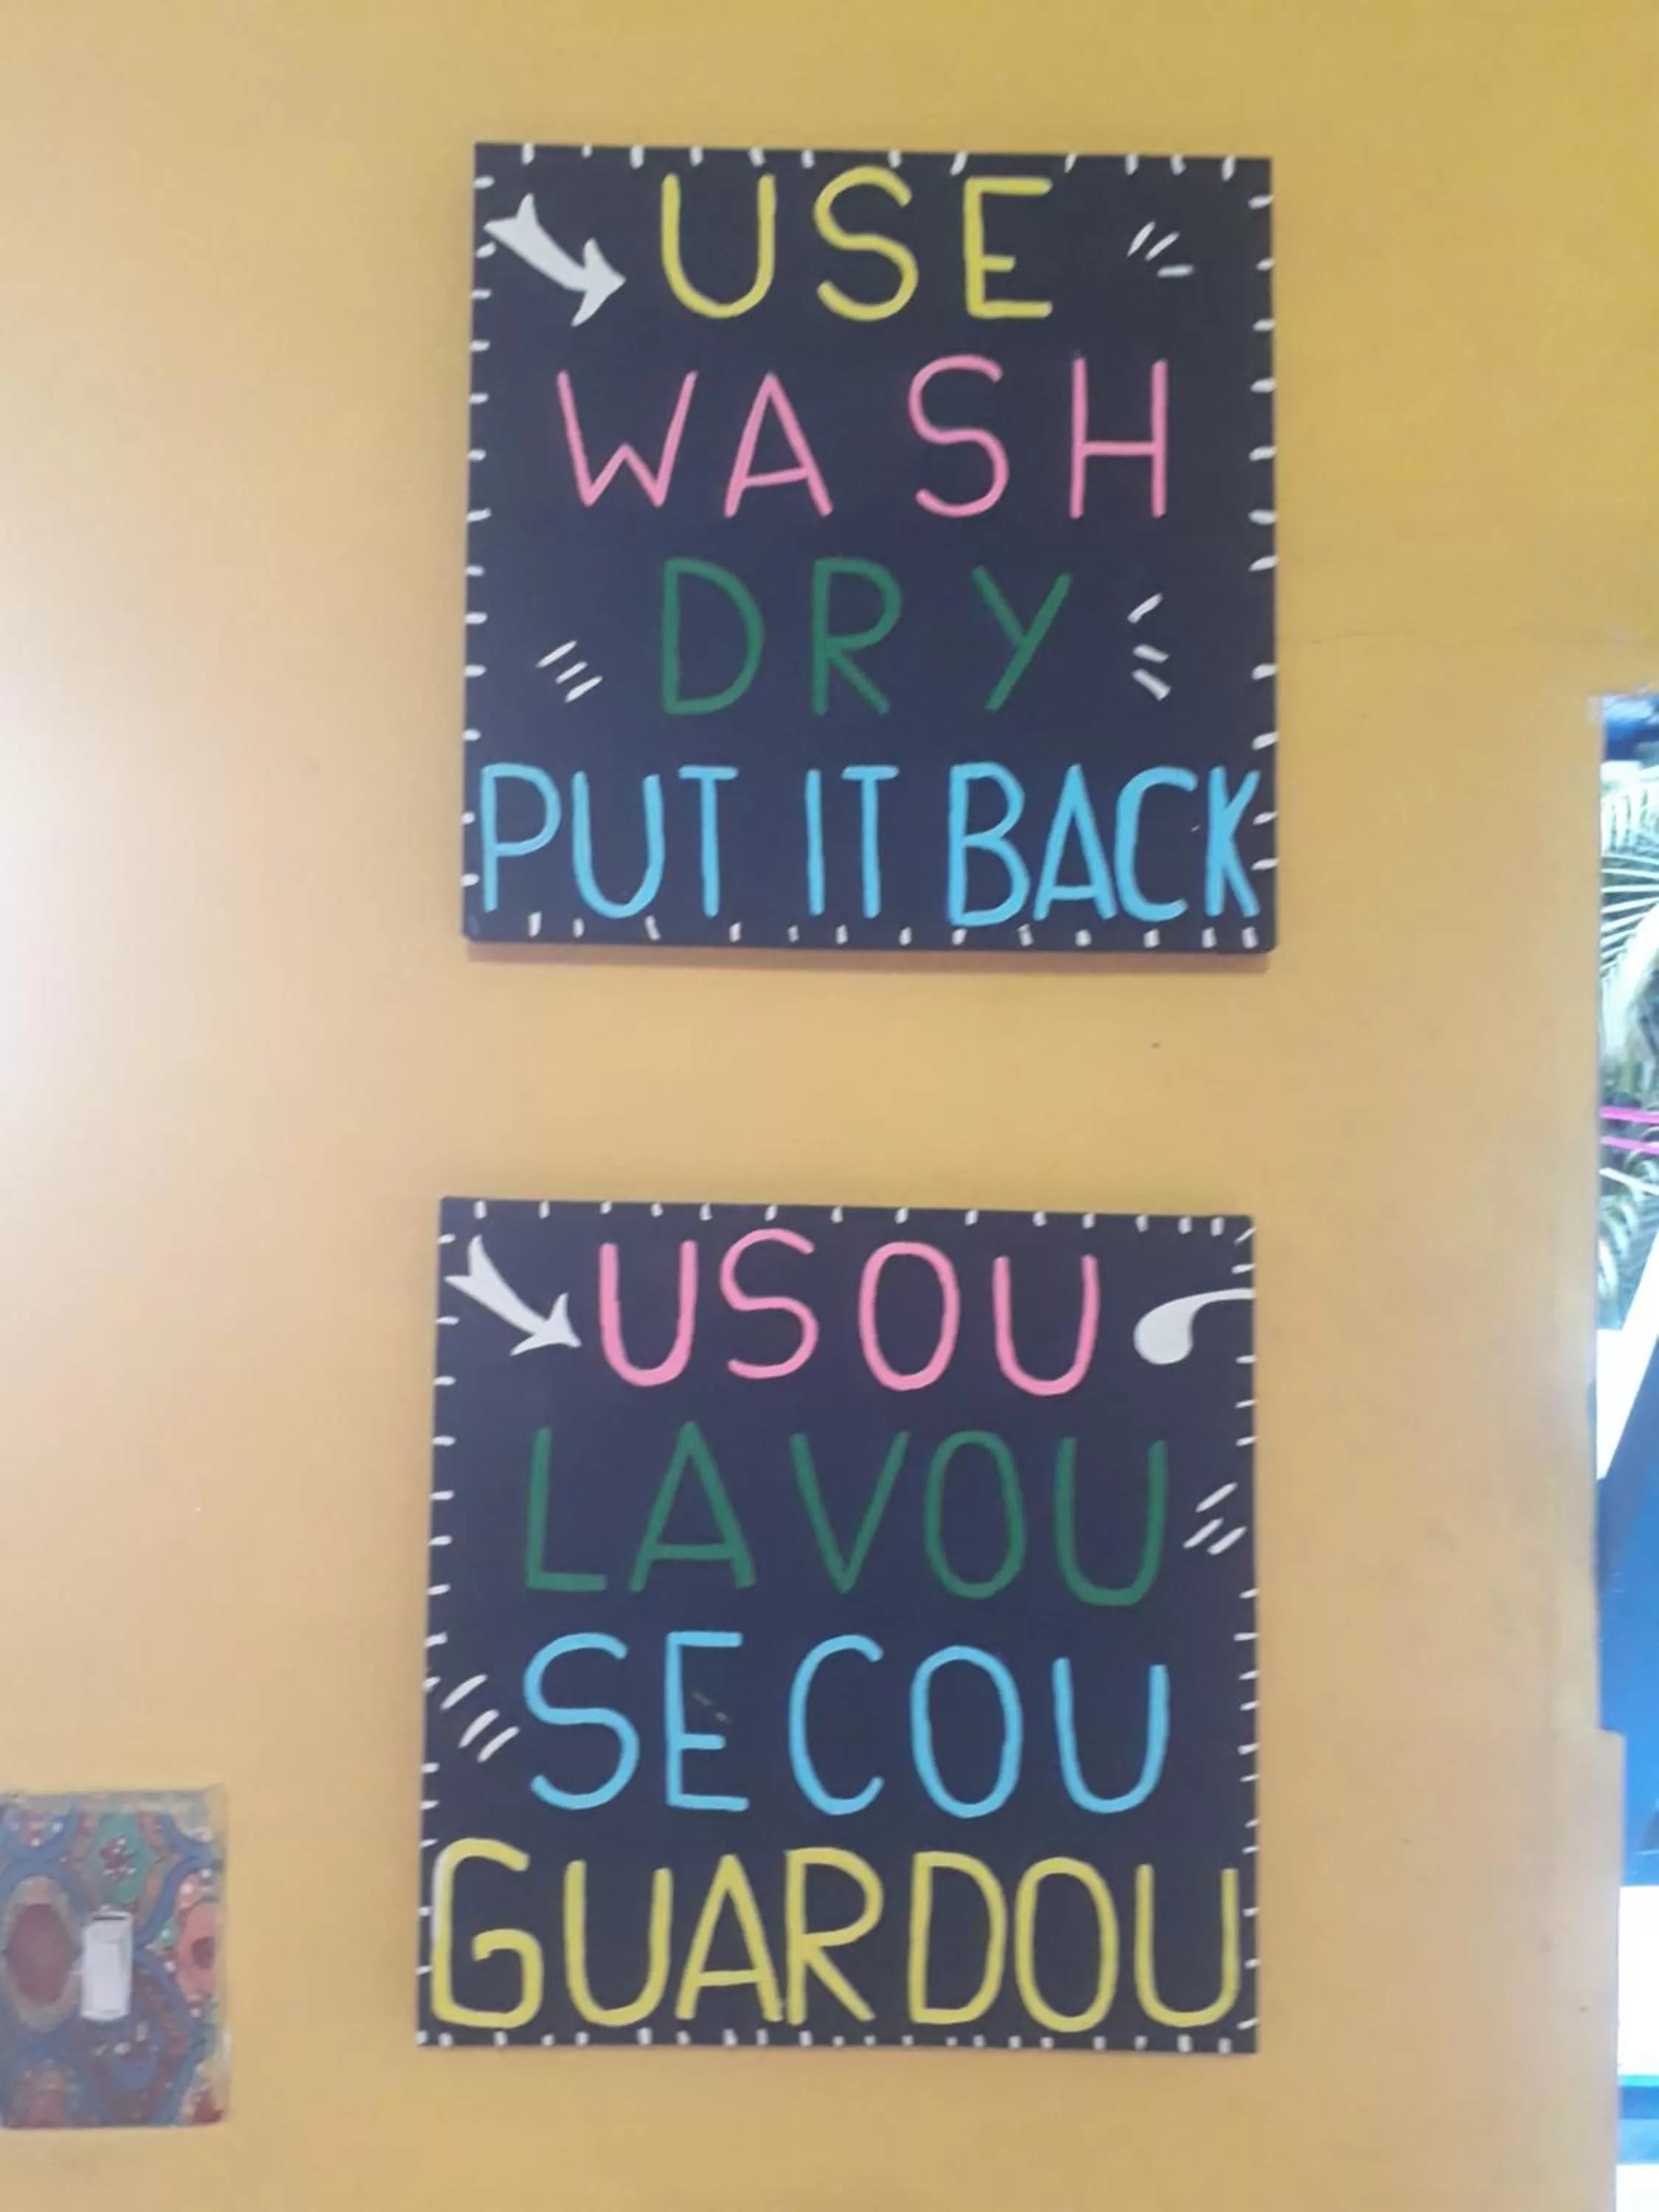 USE
WASH
DRY
PUT IT BACK
USOU
LAVOU
SECOU
GUARDOU